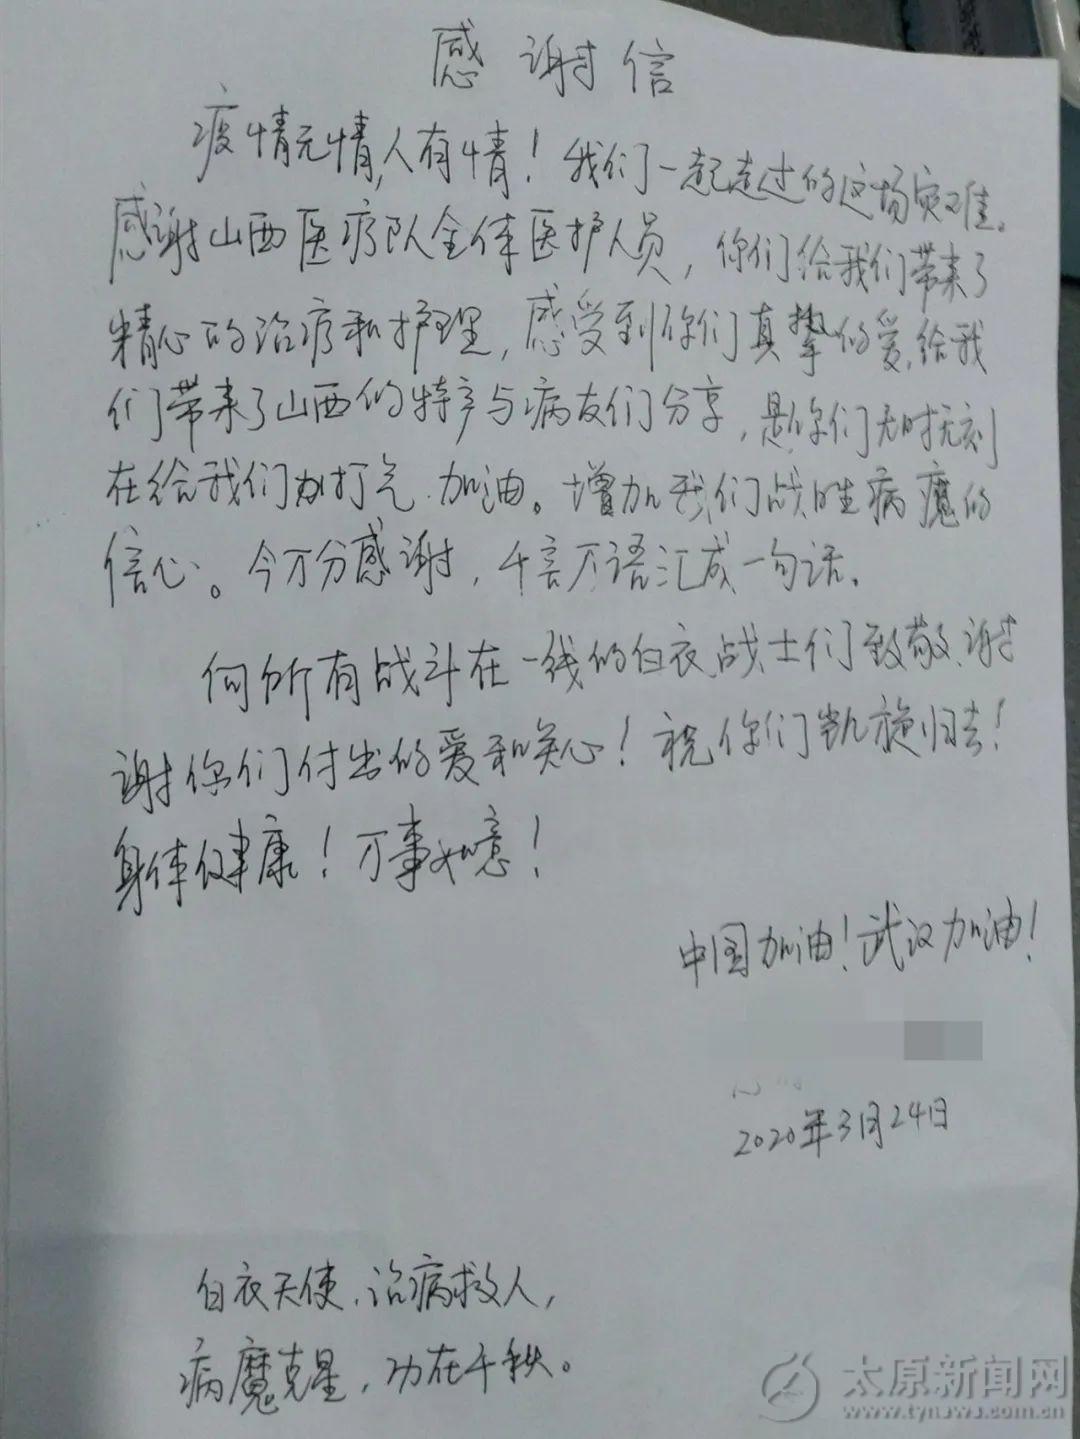 感谢信
疫情无情,人有情！我们一起走过的这场灾难。
感谢山西医疗队全体医护人员，你们给我们带来了
精心的治疗和护理，感受到你们真挚的爱,给我
们带来了山西的特产与病友们分享，是你们无时无刻
在给我们打气.加油。增加我们战胜病魔的
信心。今万分感谢，千言万语汇成一句话。
向所有战斗在一线的白衣战士们致敬.谢
谢你们付出的爱和关心！祝你们凯旋归去！
身体健康！万事如意！
中国加油！武汉加油！
2020年3月24日
白衣天使.治病救人，
病魔克星，功在千秋。
太原新闻网
www.tynews.com.cn